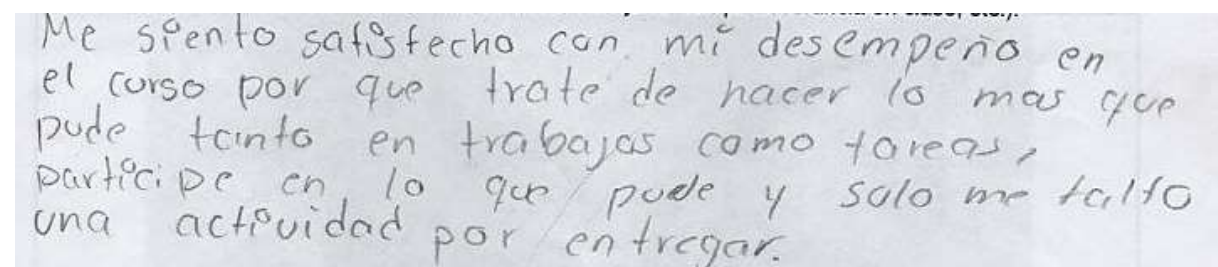 Me siento satisfecho con mi desempeño en
el curso por que trate de hacer lo mas que
pude tanto en trabajos como tareas,
participe en lo que pude y solo me falto
una actividad por entregar.